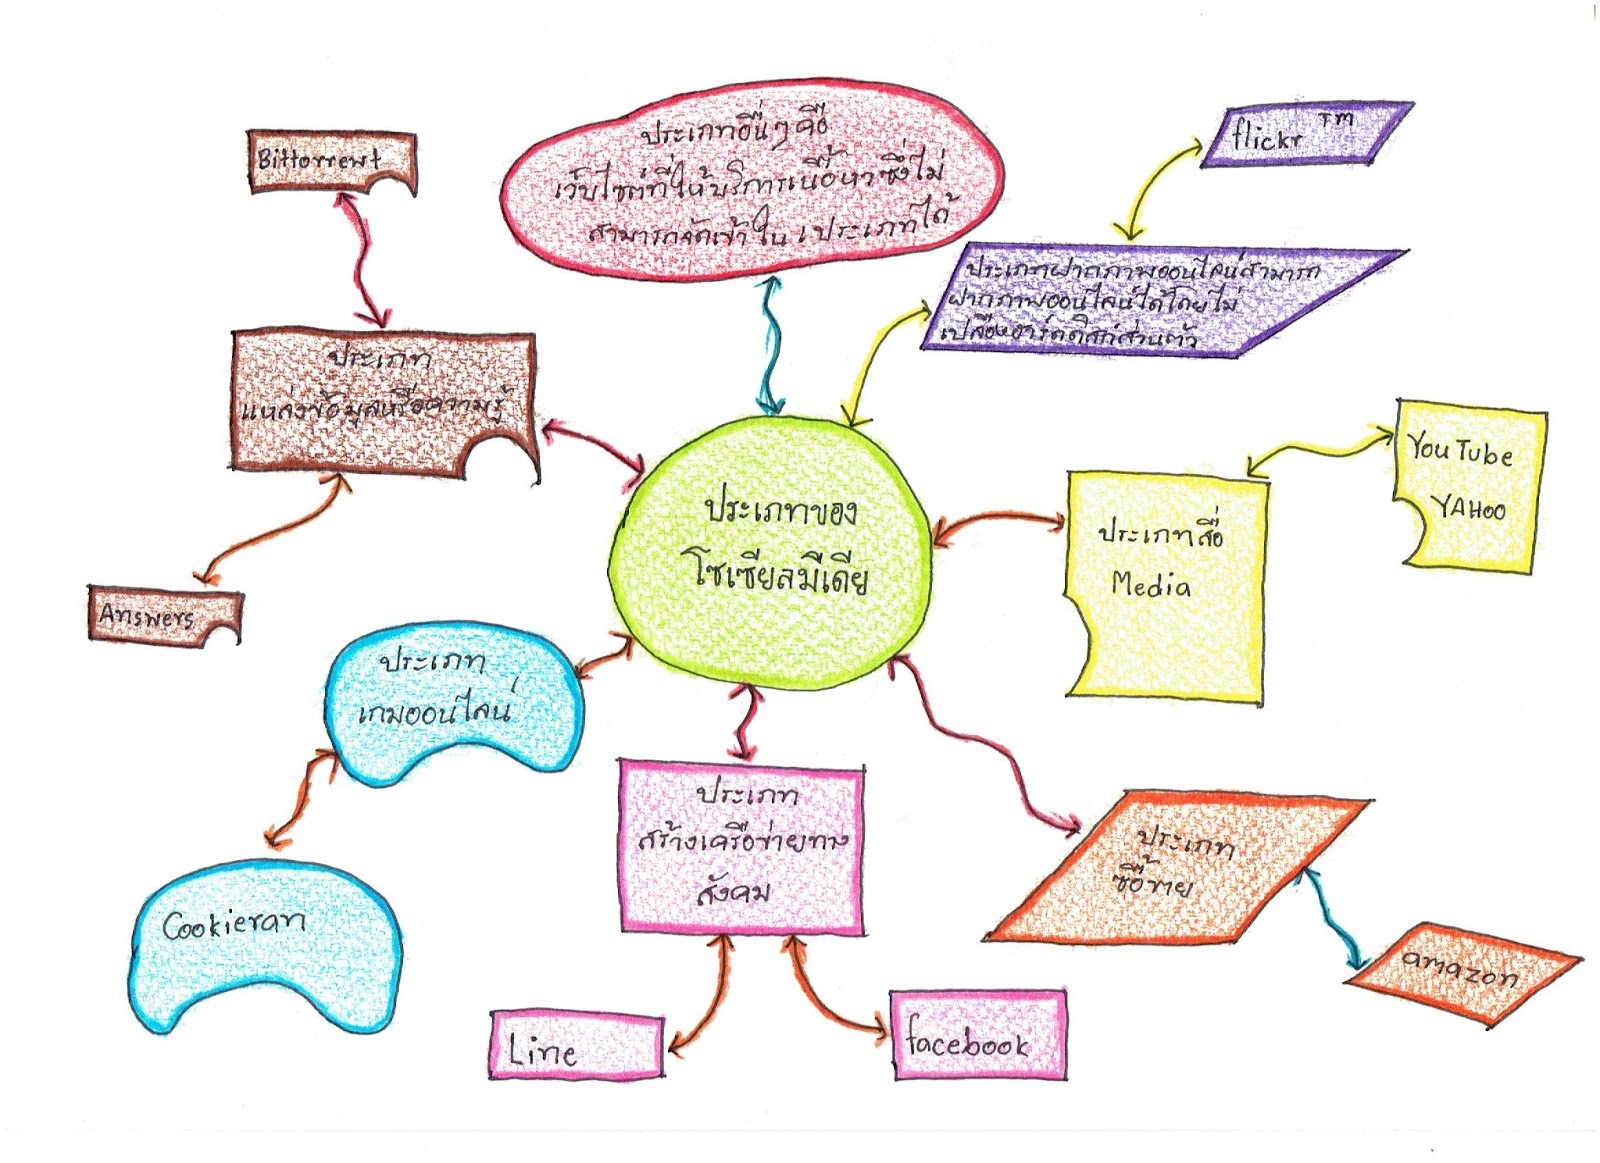 ประเภทของ
โซเซียลมีเดีย
ประเภทอื่นๆคือ
เว็บไซต์ที่ให้บริการเนื้อหาซึ่งไม่
สามารถจัดเข้าใน เประเภทได้
flickr TM
ประเภทฝากภาพออนไลน์สามารถ
ฝากภาพออนไลน์ได้โดยไม่
เปลืองฮาร์ดดิสก์ส่วนตัว
YouTube
YAHOO
ประเภทสื่อ
Media
ประเภท
ซื้อขาย
amazon
ประเภท
สร้างเครือข่ายทาง
สังคม
Line
facebook
ประเภท
เกมออนไลน์
Cookieran
ประเภท
แหล่งข้อมูลหรือความรู้
Bittorrewt
Answers